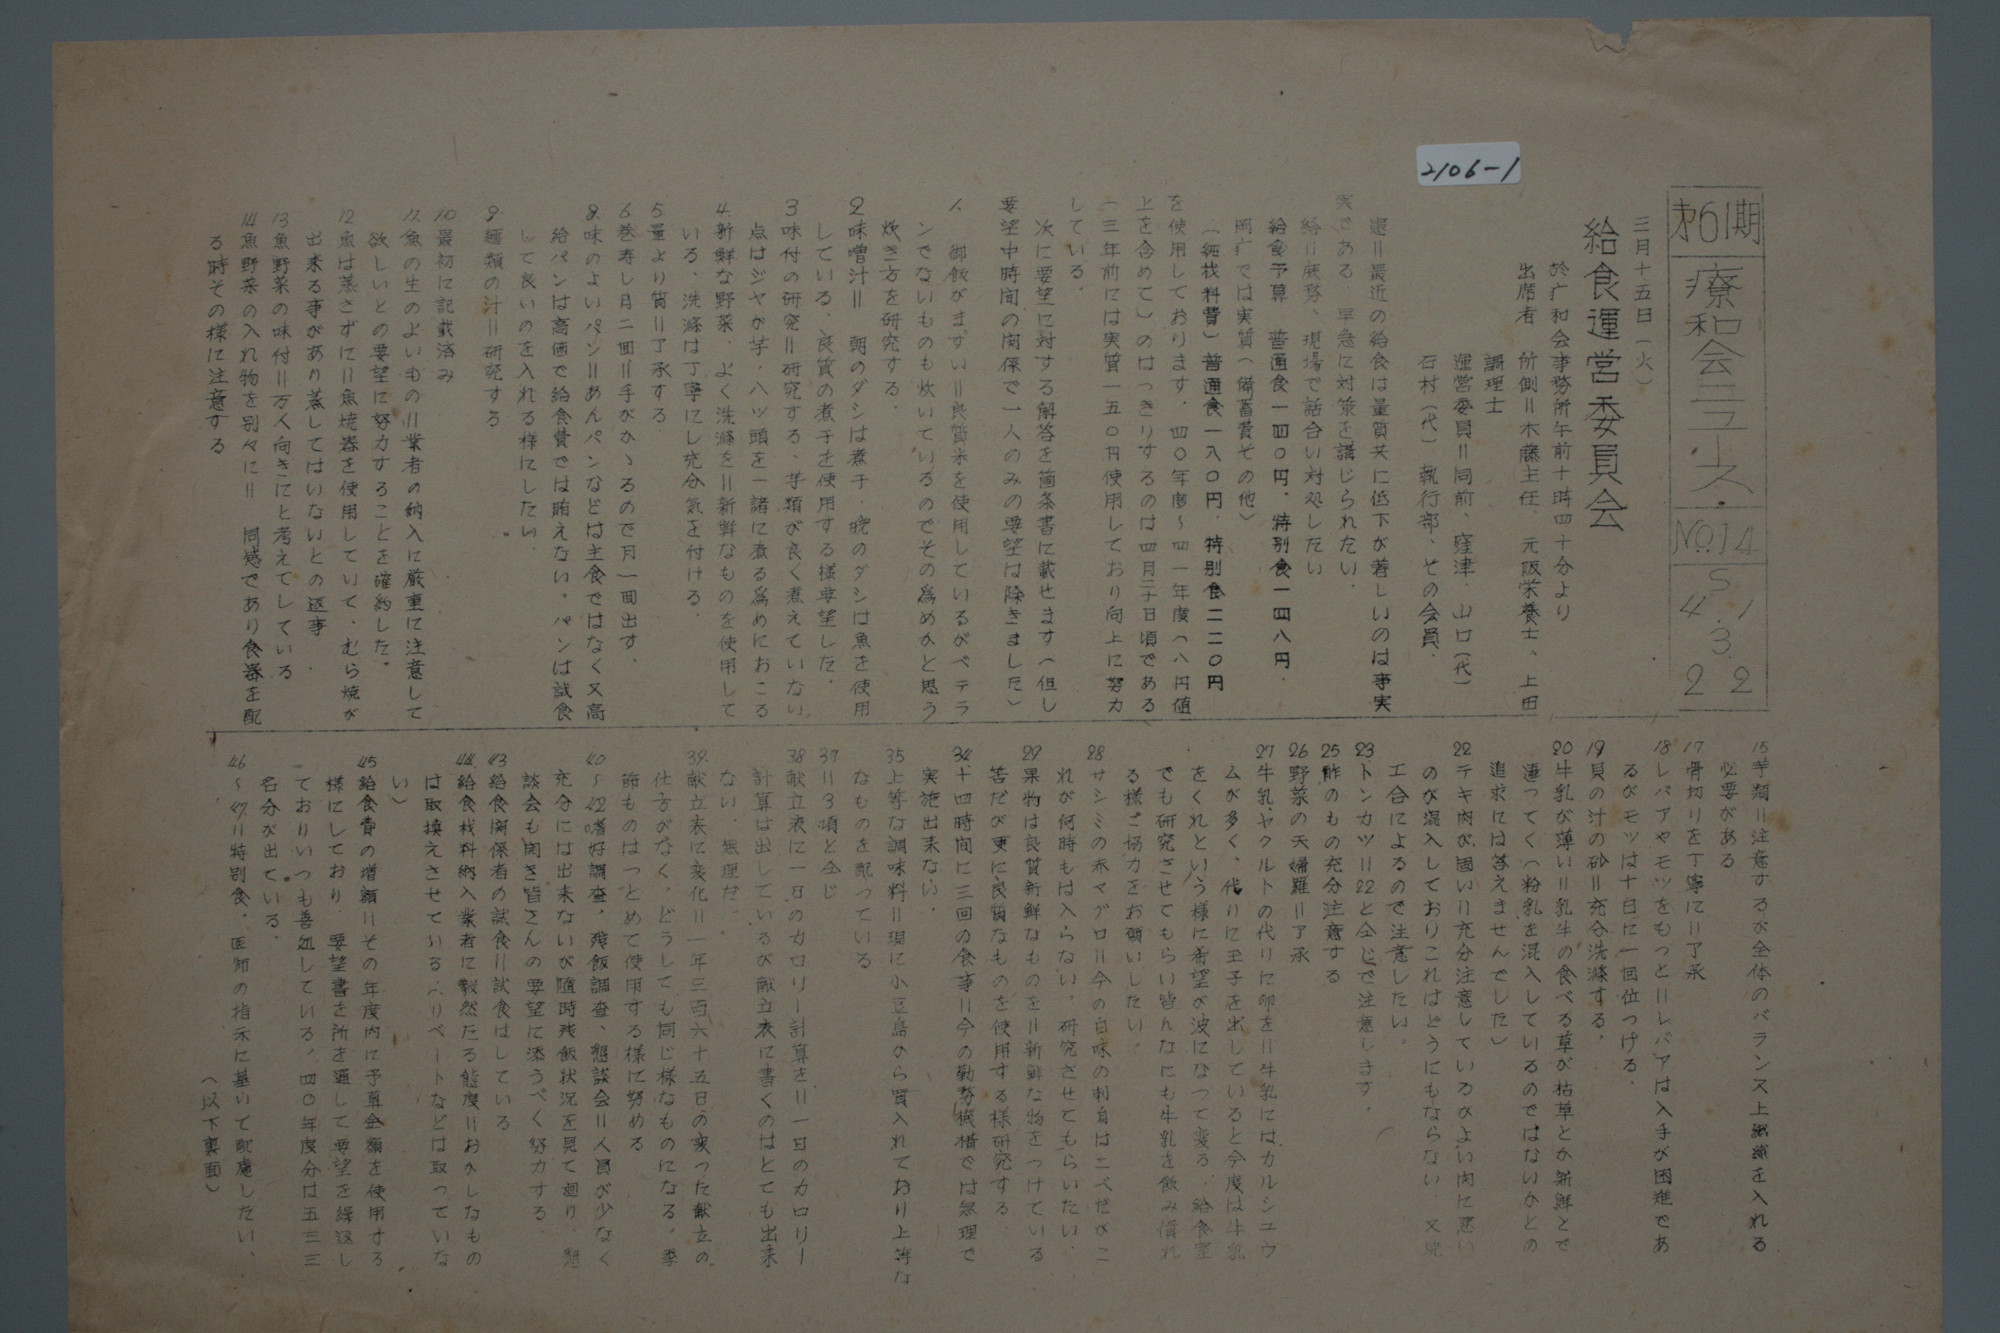 2106-1
第61期
療和会ニュース
No.14
S
41.
3.
22
三月十五日(火)
給食運営委員会
於疒和会事務所午前十時四十分より
出席者 所側=木藤主任 元阪栄養士、上田
調理士
運営委員=同前、窪津、山口(代)
石村(代) 執行部、その会員.
題=最近の給食は量質共に低下が著しいのは事実
実である.早急に対策を講じられたい.
給=庶務、現場で話合い対処したい
給食予算 普通食一四〇円.特別食一四八円.
同疒では実質(備蓄費その他)
(純材料費)普通食一八〇円.特別食二二〇円
を使用しております.四〇年度〜四一年度(八円値
上を含めて)のはっきりするのは四月三十日頃である
(三年前には実質一五〇円使用しており向上に努力
している.
次に要望に対する解答を箇条書に載せます(但し
要望中時間の関係で一人のみの要望は除きました)
1. 御飯がまずい=良質米を使用しているがベテラ
ンでないものも炊いているのでその為めかと思う
炊き方を研究する.
2味噌汁= 朝のダシは煮子.晩のダシは魚を使用
している、良質の煮子を使用する様要望した.
3味付の研究=研究する、芋類が良く煮えていない
点はジャガ芋.八ツ頭を一諸に煮る為めにおこる
4.新鮮な野菜、よく洗滌を=新鮮なものを使用して
いる、洗滌は丁寧にし充分気を付ける.
5量より質=了承する.
6巻寿し月二回=手がかゝるので月一回出す、
8.味のよいパン=あんパンなどは主食ではなく又高
給パンは高価で給食費では賄えない。パンは試食
して良いのを入れる様にしたい.
9麺類の汁=研究する
10最初に記載済み
11.魚の生のよいもの=業者の納入に厳重に注意して
欲しいとの要望に努力することを確約した。
12魚は蒸さずに=魚焼器を使用していて、むら焼が
出来る事があり蒸してはいないとの返事.
13魚野菜の味付=万人向きにと考えてしている
14魚野菜の入れ物を別々に= 同感であり食器を配
る時その様に注意する
15芋類=注意するが全体のバランス上繊維を入れる
必要がある
17骨切りを丁寧に=了承
18レバアやモツをもっと=レバアは入手が困進であ
るがモツは十日に一回位つける.
19貝の汁の砂=充分洗滌する.
20牛乳が薄い=乳牛の食べる草が枯草とか新鮮とで
違ってく(粉乳を混入しているのではないかとの
追求には答えませんでした)
22テキ肉が固い=充分注意しているがよい肉に悪い
のが混入しておりこれはどうにもならない.又焼
工合によるので注意したい。
23トンカツ=22と仝じで注意します.
25酢のもの充分注意する
26野菜の天婦羅=了承
27牛乳、ヤクルトの代りに卵を=牛乳にはカルシユウ
ムが多く、代りに玉子を出していると今度は牛乳
をくれという様に希望が波になって変る.給食室
でも研究させてもらい皆んなにも牛乳を飲み慣れ
る様ご協力をお願いしたい.
28サシミの赤マグロ=今の白味の刺身はニべだがこ
れが何時もは入らない.研究させてもらいたい.
29果物は良質新鮮なものを=新鮮な物をつけている
苦だが更に良質なものを使用する様研究する.
34十四時間に三回の食事=今の勤務機構では無理で
実施出来ない.
35上等な調味料=現に小豆島から買入れており上等な
なものを配っている
37=3項と仝じ
38献立表に一日のカロリー計算を=一日のカロリー
計算は出しているが献立表に書くのはとても出来
ない.無理だ.
39.献立表に変化=一年三百六十五日の変った献立の
仕方がなく、どうしても同じ様なものになる。季
節ものはつとめて使用する様に努める
40〜42嗜好調査、残飯調査、懇談会=人員が少なく
充分には出来ないが随時残飯状況を見て廻り.懇
談会も開き皆さんの要望に添うべく努力する.
43給食関係者の試食=試食はしている
44給食材料納入業者に毅然たる態度=おかしなもの
は取換えさせている(リベートなどは取っていな
い)
45給食費の増額=その年度内に予算金額を使用する
様にしており.要望書を所を通して要望を繰返し
ておりいつも善処している.四〇年度分は五三三
名分が出ている.
46〜47=特別食.医師の指示に基いて配慮したい、
(以下裏面)